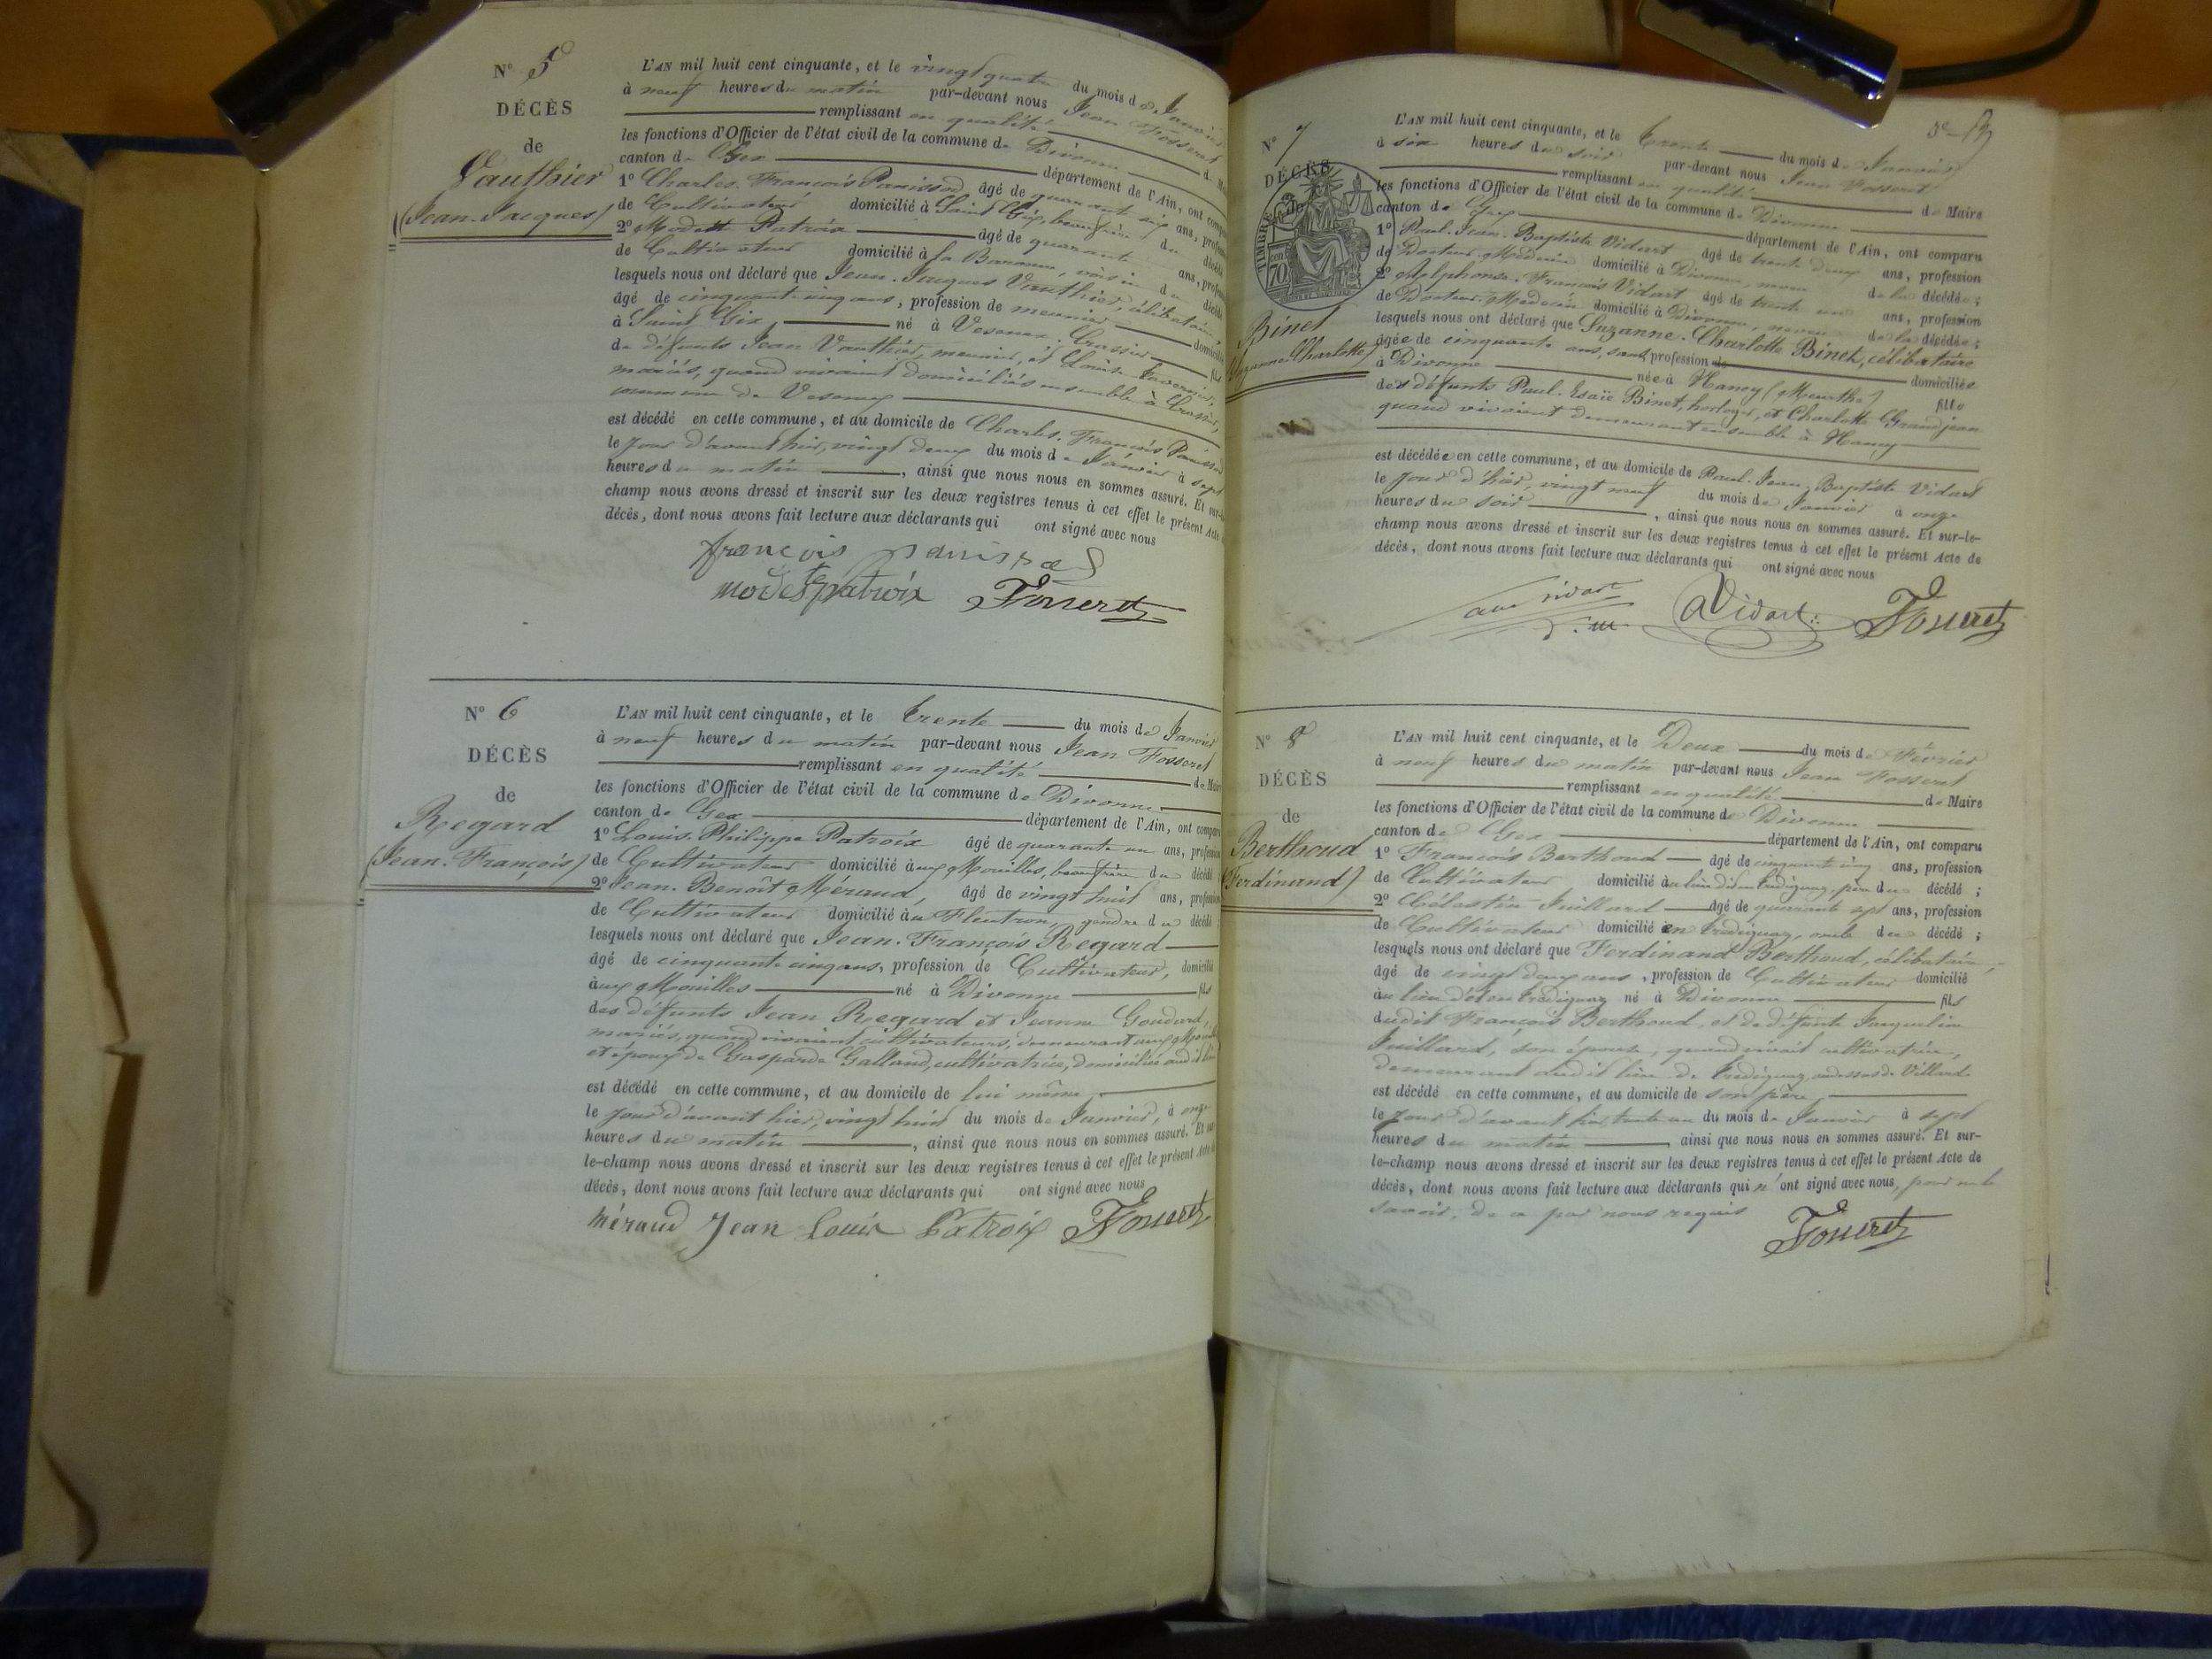 N° 5
DÉCÈS
de
Vauthier
(Jean-Jacques)
L'AN mil huit cent cinquante, et le vingt quatre du mois de Janvier
à neuf heures du matin par-devant nous Jean Fosseret
remplissant en qualité de
les fonctions d'Officier de l'état civil de la commune de Divonne
canton de Gex département de l'Ain, ont
1° Charles-François Panissod, âgé de quarante ans,
de Cultivateur domicilié à Saint Gix, beau frère du décédé
2° Modeste Patroix âgé de quarante ans,
de Cultivateur domicilié à la Baronne, voisin du décédé
lesquels nous ont déclaré que Jean-Jacques Vauthier, célibataire,
âgé de cinquante cinq ans, profession de meunier
à Saint Gix né à Vesancy, Crassier fils
de défunts Jean Vauthier, meunier, et Louise
mariés, quand vivaient domiciliés ensemble à Crassier,
commune de Vesancy
est décédé en cette commune, et au domicile de Charles-François Panissod
le jour d'avant hier, vingt deux du mois de Janvier à sept
heures du matin, ainsi que nous nous en sommes assuré. Et sur-le-
champ nous avons dressé et inscrit sur les deux registres tenus à cet effet le présent Acte
décès, dont nous avons fait lecture aux déclarants qui ont signé avec nous
françois panissod
modeste patroix Fosseret
N° 6
DÉCÈS
de
Regard
(Jean-François)
L'AN mil huit cent cinquante, et le trente du mois de Janvier
à neuf heures du matin par-devant nous Jean Fosseret
remplissant en qualité de
les fonctions d'Officier de l'état civil de la commune de Divonne
canton de Gex département de l'Ain, ont
1° Louis-Philippe Patroix âgé de quarante un ans,
de Cultivateur domicilié aux Mouilles, beau frère du décédé
2° Jean-Benoît Méraud, âgé de vingt huit ans,
de Cultivateur domicilié à Fleutron, gendre du décédé
lesquels nous ont déclaré que Jean-François Regard
âgé de cinquante cinq ans, profession de Cultivateur, domicilié
aux Mouilles né à Divonne fils
des défunts Jean Regard et Jeanne Goudard,
mariés, quand vivaient cultivateurs, demeurant aux Mouilles
et époux de Gasparde Galland, cultivatrice, domiciliée audit lieu
est décédé en cette commune, et au domicile de lui même,
le jour d'avant hier, vingt huit du mois de Janvier, à onze
heures du matin, ainsi que nous nous en sommes assuré. Et sur
le-champ nous avons dressé et inscrit sur les deux registres tenus à cet effet le présent Acte
décès, dont nous avons fait lecture aux déclarants qui ont signé avec nous
Méraud Jean Louis Patroix Fosseret
N° 7
DÉCÈS
de
Binet
Suzanne-Charlotte)
L'AN mil huit cent cinquante, et le trente du mois de Janvier
à six heures du soir par-devant nous Jean Fosseret
remplissant en qualité de Maire
les fonctions d'Officier de l'état civil de la commune de Divonne
canton de Gex département de l'Ain, ont comparu
1° Paul-Jean-Baptiste Vidart âgé de trente deux ans, profession
de Docteur-Médecin domicilié à Divonne, neveu de la décédée ;
2° Alphonse-François Vidart âgé de trente un ans, profession
de Docteur-Médecin domicilié à Divonne, neveu de la décédée ;
lesquels nous ont déclaré que Suzanne-Charlotte Binet, célibataire
âgée de cinquante ans, sans profession de domiciliée
à Divonne née à Nancy (Meurthe) fille
des défunts Paul-Esaïe Binet, horloger, et Charlotte Grandjean
quand vivaient demeurant ensemble à Nancy
est décédée en cette commune, et au domicile de Paul-Jean-Baptiste Vidart
le jour d'hier, vingt neuf du mois de Janvier à onze
heures du soir, ainsi que nous nous en sommes assuré. Et sur-le-
champ nous avons dressé et inscrit sur les deux registres tenus à cet effet le présent Acte de
décès, dont nous avons fait lecture aux déclarants qui ont signé avec nous
AVidart Fosseret
N° 8
DÉCÈS
de
Berthoud
Ferdinand)
L'AN mil huit cent cinquante, et le Deux du mois de Février
à neuf heures du matin par-devant nous Jean Fosseret
remplissant en qualité de Maire
les fonctions d'Officier de l'état civil de la commune de Divonne
canton de Gex département de l'Ain, ont comparu
1° François Berthoud âgé de cinquante cinq ans, profession
de Cultivateur domicilié au lieu dit en, père du décédé ;
2° Célestin Juillard âgé de quarante sept ans, profession
de Cultivateur domicilié en, oncle du décédé ;
lesquels nous ont déclaré que Ferdinand Berthoud, célibataire,
âgé de vingt deux ans, profession de Cultivateur domicilié
au lieu dit en né à Divonne fils
dudit François Berthoud, et de défunte Jacqueline
Juillard, son épouse, quand vivait cultivatrice,
demeurant audit lieu de Villard
est décédé en cette commune, et au domicile de son père,
le jour d'avant hier, trente un du mois de Janvier à sept
heures du matin, ainsi que nous nous en sommes assuré. Et sur-
le-champ nous avons dressé et inscrit sur les deux registres tenus à cet effet le présent Acte de
décès, dont nous avons fait lecture aux déclarants qui n'ont signé avec nous, pour ne le
savoir, de ce par nous requis
Fosseret